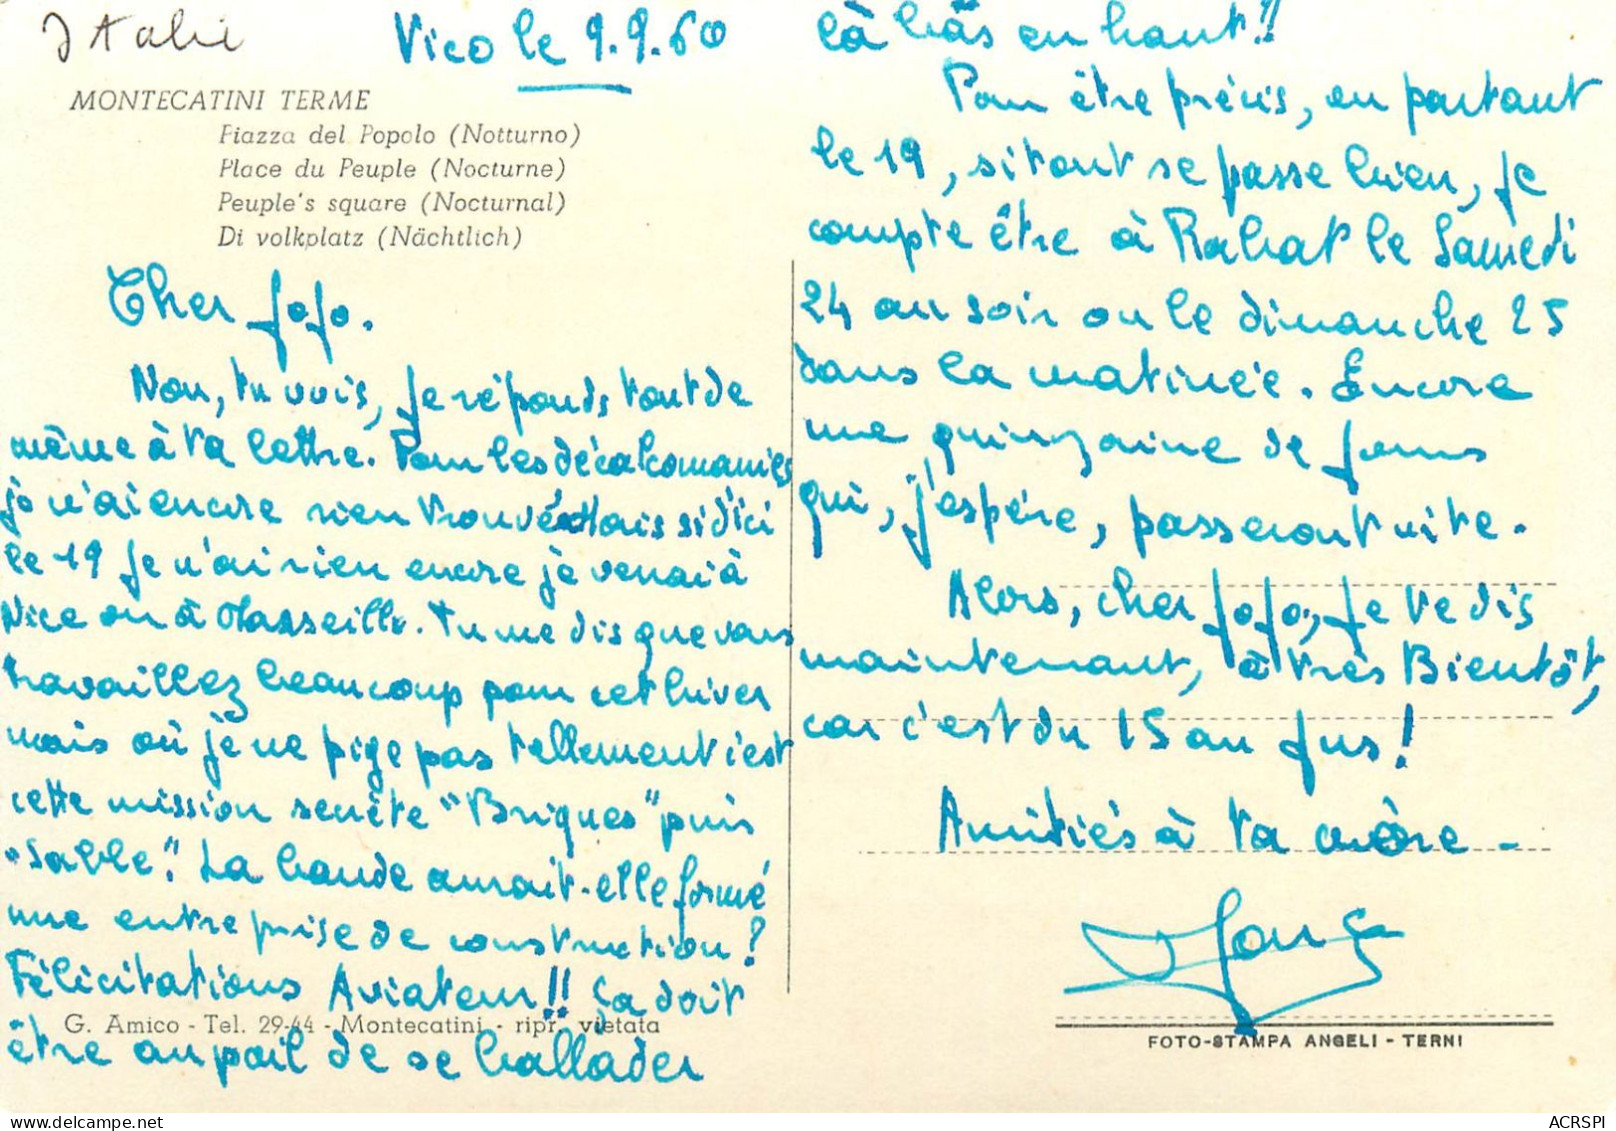 Italie
Vico le 9.9.60
MONTECATINI TERME
Piazza del Popolo (Notturno)
Place du Peuple (Nocturne)
Peuple's square (Nocturnal)
Di volkplatz (Nächtlich)
Cher Jojo.
Non, tu vois, je réponds tout de
même à ta lettre. Pour les décalcomanies
je n'ai encore rien trouvé Mais si d'ici
le 19 je n'ai rien encore je verrai à
Nice ou à Marseille. Tu me dis que vous
travaillez beaucoup pour cet hiver
mais où je ne pige pas tellement c'est
cette mission secrète "Briques" puis
"Sable". La bande aurait-elle formé
une entreprise de construction?
Félicitations Aviateur!! ça doit
G. Amico - Tel. 29-44 - Montecatini - ripr. vietata
être au poil de se ballader
là bàs en haut!!
Pour être précis, en partant
le 19, si tout se passe bien, je
compte être à Rabat le Samedi
24 au soir ou le dimanche 25
dans la matinée. Encore
une quinzaine de jours
qui, j'espère, passeront vite.
Alors, cher Jojo, je te dis
maintenant, à très Bientôt,
car c'est du 15 au jus!
Amitiés à ta mère -
FOTO-STAMPA ANGELI - TERNI
ACRSPI